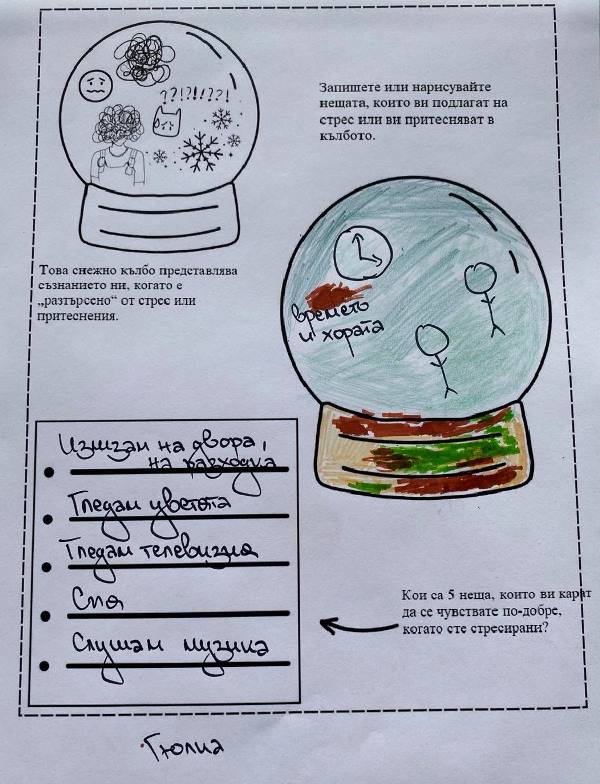 ??!!!?!
Запишете или нарисувайте
нещата, които ви подлагат на
стрес или ви притесняват в
кълбото.
Това снежно кълбо представлява
съзнанието ни, когато е
„разтърсено“ от стрес или
притеснения.
времето
и хората
Излизам на двора,
на разходка
Гледам цветята
Гледам телевизия
Спя
Слушам музика
Кои са 5 неща, които ви карат
да се чувствате по-добре,
когато сте стресирани?
Гюлиа